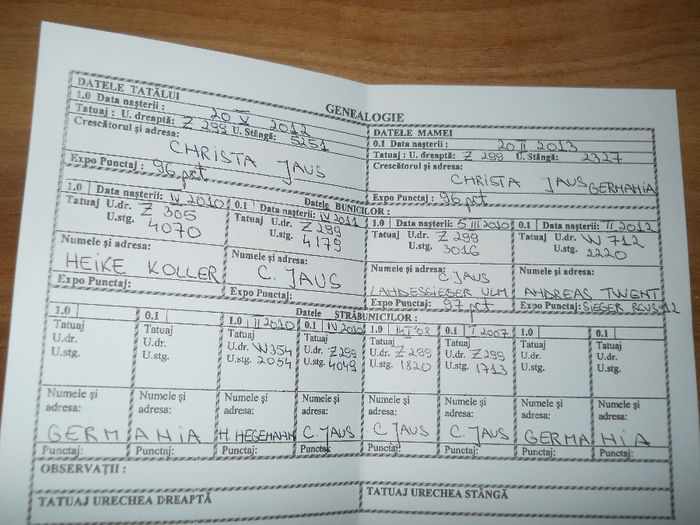 GENEALOGIE
DATELE TATĂLUI
1.0 Data naşterii : 20 V 2012
Tatuaj : U. dreaptă: Z 299 U. Stângă: 5251
Crescătorul şi adresa:
CHRISTA JAUS
Expo Punctaj : 96 pct
DATELE MAMEI
0.1 Data naşterii : 20 II 2013
Tatuaj : U. dreaptă: Z 299 U. Stângă: 2327
Crescătorul şi adresa:
CHRISTA JAUS GERMANIA
Expo Punctaj : 96 pct
Datele BUNICILOR :
1.0 Data naşterii: IV 2010
Tatuaj U.dr. Z 305
U.stg. 4070
Numele şi adresa:
HEIKE KOLLER
Expo Punctaj:
0.1 Data naşterii: IV 2011
Tatuaj U.dr. Z 299
U.stg. 4179
Numele şi adresa:
C. JAUS
Expo Punctaj:
1.0 Data naşterii: 5 III 2010
Tatuaj U.dr. Z 299
U.stg. 3016
Numele şi adresa:
C JAUS
LANDESSIEGER ULM
Expo Punctaj: 97 pct
0.1 Data naşterii: II 2012
Tatuaj U.dr. W 712
U.stg. 2220
Numele şi adresa:
ANDREAS TWENT
Expo Punctaj: SIEGER
Datele STRĂBUNICILOR :
1.0
Tatuaj
U.dr.
U.stg.
Numele şi
adresa:
Punctaj:
0.1
Tatuaj
U.dr.
U.stg.
Numele şi
adresa:
GERMANIA
Punctaj:
1.0 II 2010
Tatuaj
U.dr. W354
U.stg. 2054
Numele şi
adresa:
H HEGEMANN
Punctaj:
0.1 IV 2010
Tatuaj
U.dr. Z299
U.stg. 4049
Numele şi
adresa:
C. JAUS
Punctaj:
1.0
Tatuaj
U.dr. Z 299
U.stg. 1820
Numele şi
adresa:
C JAUS
Punctaj:
0.1 I 2007
Tatuaj
U.dr. Z299
U.stg. 1713
Numele şi
adresa:
C. JAUS
Punctaj:
1.0
Tatuaj
U.dr.
U.stg.
Numele şi
adresa:
Punctaj:
0.1
Tatuaj
U.dr.
U.stg.
Numele şi
adresa:
GERMANIA
Punctaj:
OBSERVAŢII :
TATUAJ URECHEA DREAPTĂ
TATUAJ URECHEA STÂNGĂ